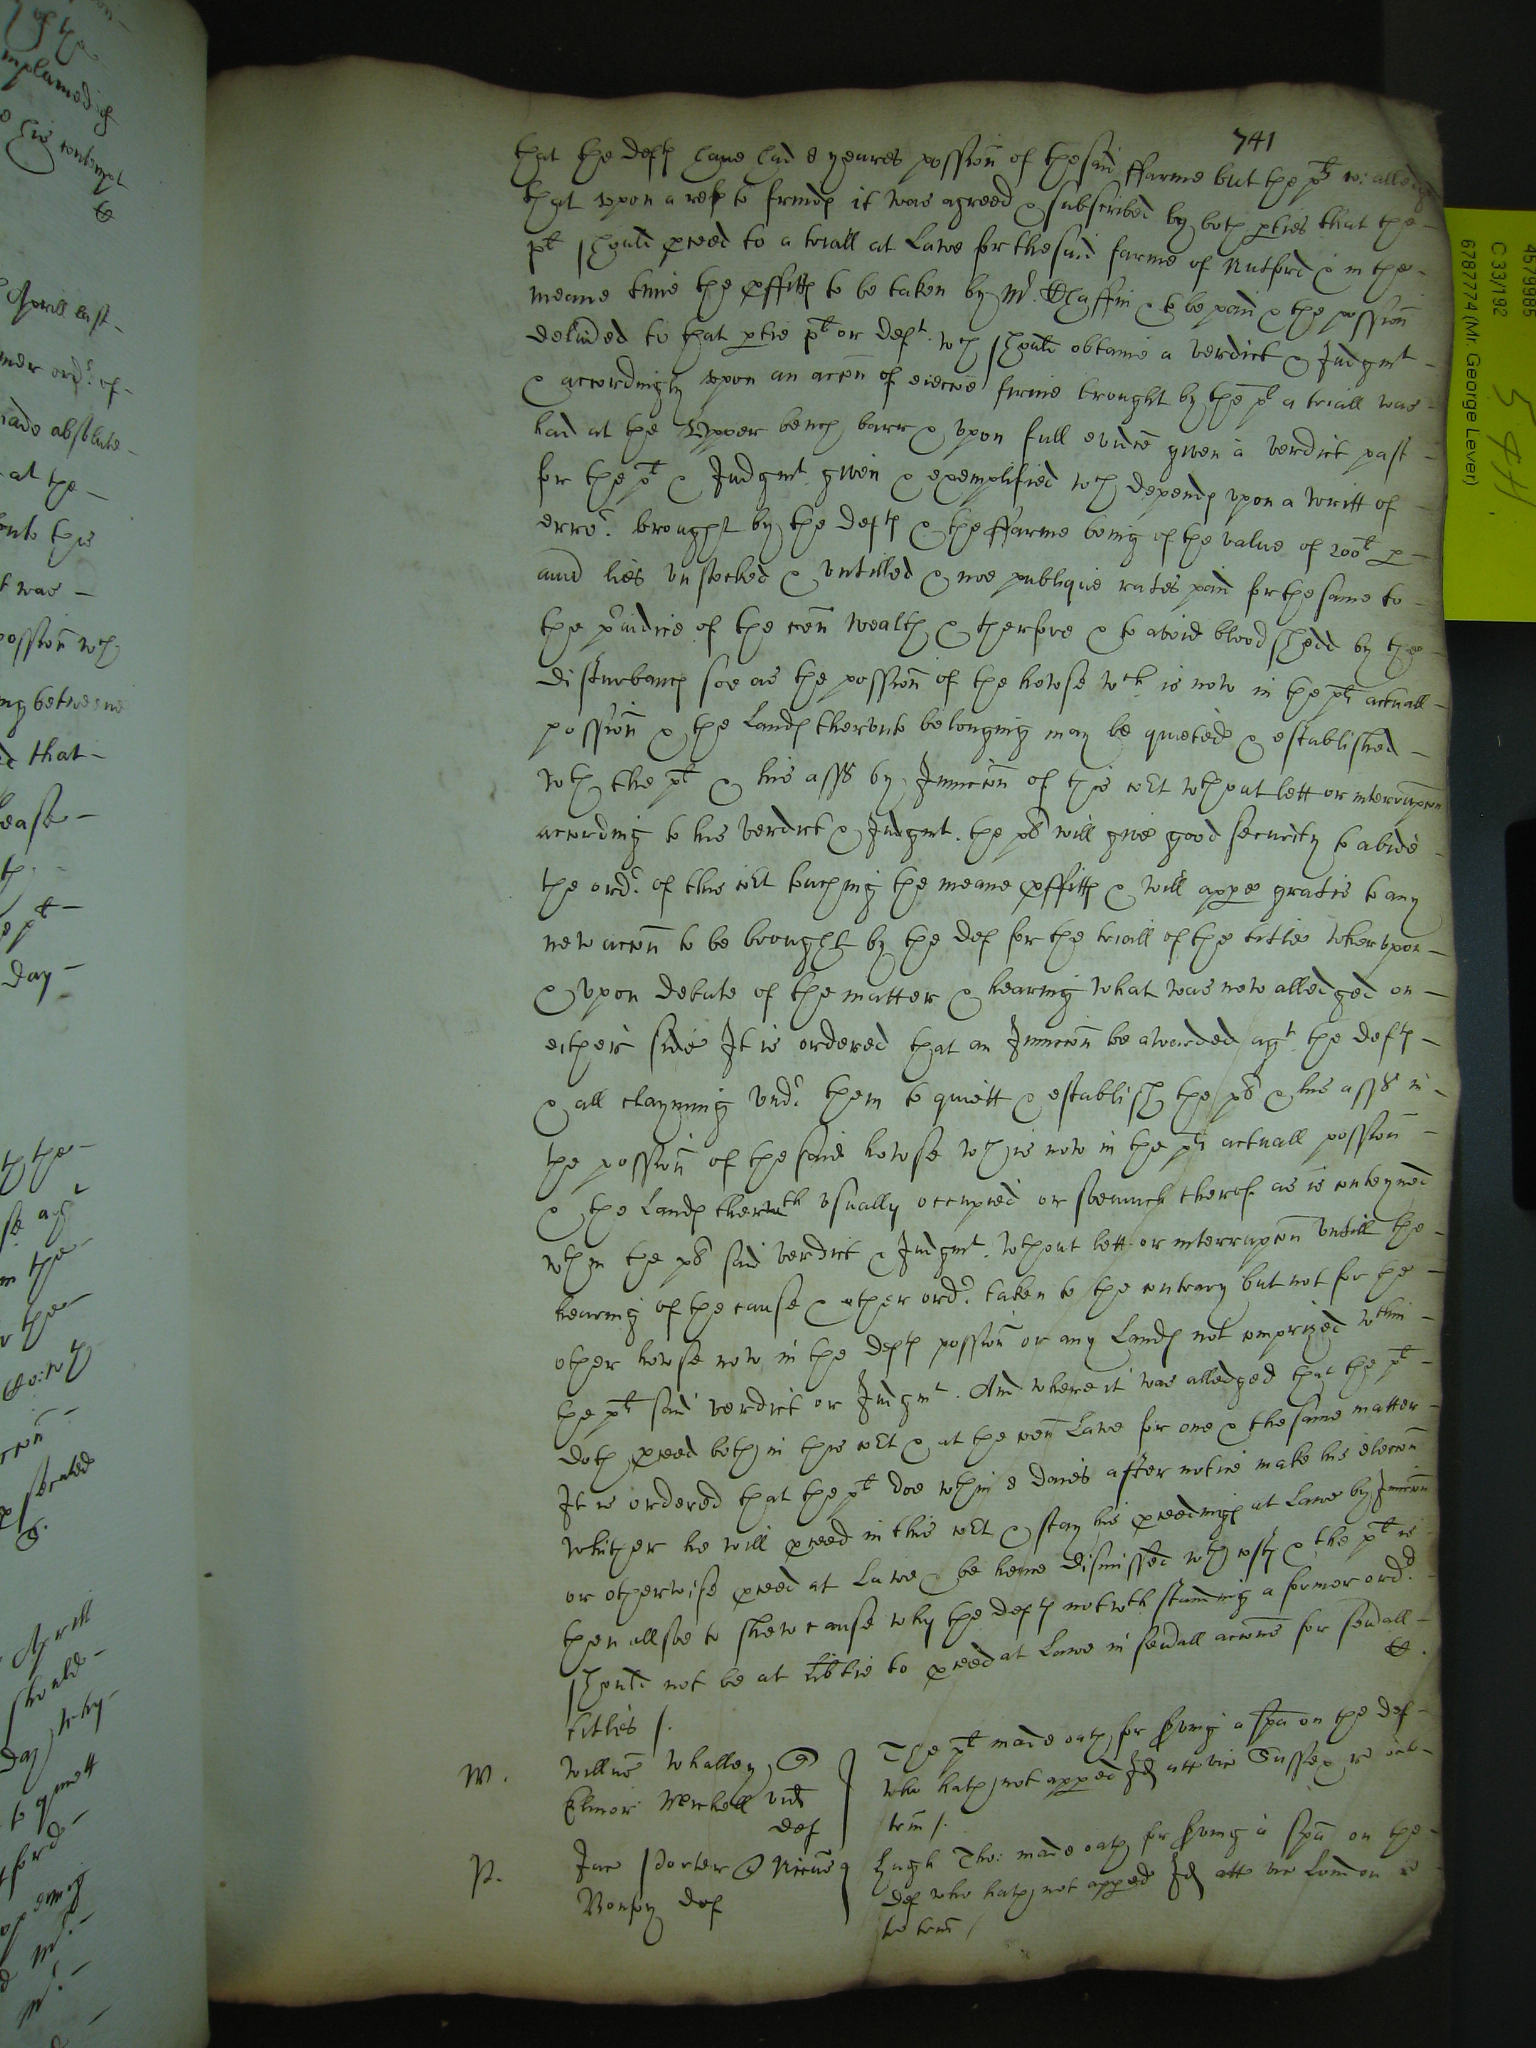 741
that the defts have had 8 yeares possion of the said ffarme but the plt
that upon a refer to frends it was agreed & subscribed by both pties that the
plt should pceed to a triall at Lawe for the said farme of Nutford & in the
meane time the pffitts to be taken by Mr. Chaffin & to be paid & the possion
delivied to that ptie plt or deft wch should obtaine a verdict & Judgmt
& accordingly upon an accon of eiectione firme brought by the plt a triall was
had at the Upper bench barr & upon full evidce given a verdict past
for the plt & Judgmt given & exemplified wch depends upon a writt of
erro.r brought by the defts & the ffarme being of the value of 200l p
ann lies unstocked & untilled & noe publique rates paid for the same to
the piudice of the comon wealth & therfore & to avoid bloodshedd by the
disturbance soe as the possion of the howse wch is now in the plts actuall
possion & the Lands therunto belonging may be quieted & established
wth the plt & his asss by Iniunccon of this cort wthout lett or interrupcon
according to his verdict & Judgmt the plt will give good security to abide
the ord.r of this cort touching the meane pffitts & will appe gratis to any
new accon to be brought by the def for the triall of the title wherupon
& upon debate of the matter & hearing what was now alledged on
either side It is ordered that an Iniunccon be awarded agt the defts
& all clayming und.r them to quiett & establish the plt & his asss in
the possion of the said howse wch is now in the plts actuall possion
& the Lands therwth usually occupied or soemuch therof as is conteyned
wthin the plts said verdict & Judgmt wthout lett or interrupcon untill the
hearing of the cause & other ord.r taken to the contrary but not for the
other howse now in the defts possion or any Lands not comprized wthin
the plts said verdict or Judgmt. And where it was alledged that the plt
doth pceed both in this cort & at the comon Lawe for one & the same matter
It is ordered that the plt doe wthin 8 daies after notice make his eleccon
whither he will pceed in this cort & stay his pceedings at Lawe by Iniunccon
or otherwise pceed at Lawe & be hence dismissed wth costs & the plt is
then allsoe to shew cause why the defts notwthstanding a former ord.r
should not be at lib'tie to pceed at Lawe in sevall accons for sevall
titles /.
W. Willm Whalley Q
Elinor Michell vid
def
The plt made oath for sving a spa on the def
who hath not apped Id att vic Sussex re
trm /.
P. Jac Porter Q
def
Hugh Tho: made oath for sving a spa on the
def who hath not apped Id att vic London re
trm /
45799985
C 33/192
6787774 (Mr. George Lever)